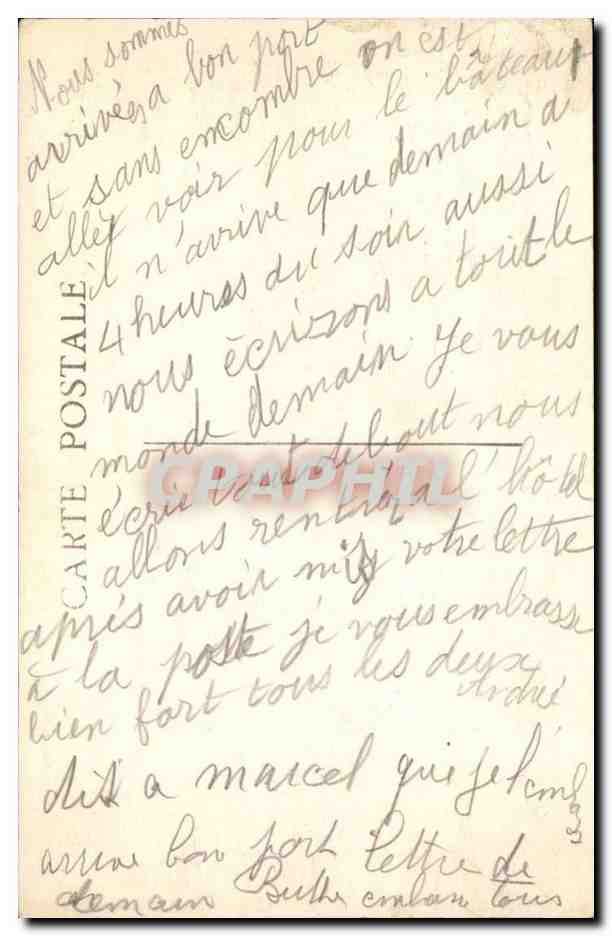 Nous sommes
arrivées a bon port
et sans encombre on est
allez voir pour le bâteau
il n'arrive que demain a
4 heures du soir aussi
nous écrizons a tout le
monde demain Je vous
écrit tout debout nous
allons rentrez a l'hôtel
après avoir mis votre lettre
à la poste je vous embrasse
bien fort tous les deux
André
dit a marcel que je l'embrass
arrive bon port lettre de
demain tous
CARTE POSTALE
CPAPHIL